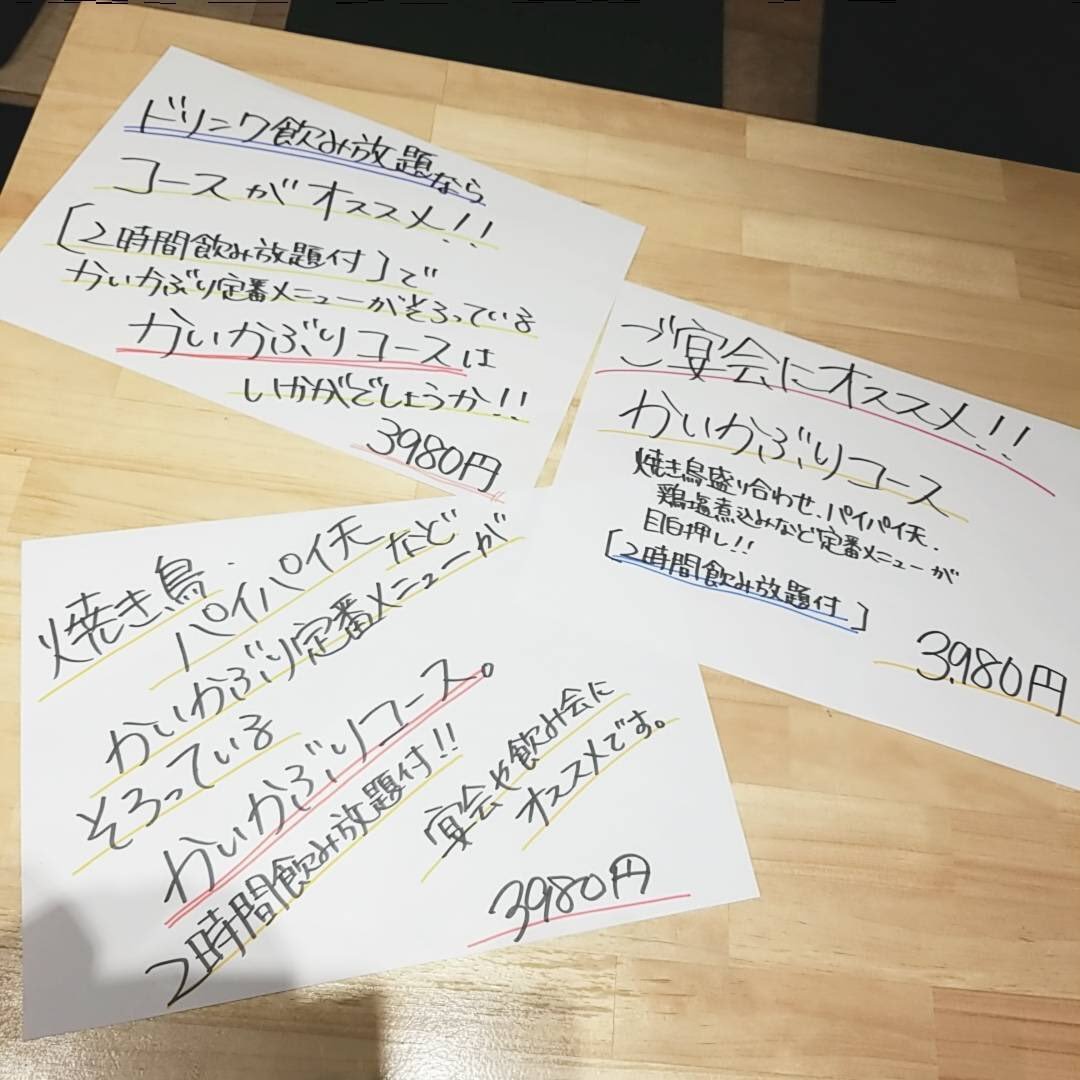 ドリンク飲み放題なら
コースがオススメ!!
[2時間飲み放題付]で
かいかぶり定番メニューがそろっている
かいかぶりコースは
いかがでしょうか!!
3980円
ご宴会にオススメ!!
かいかぶりコース
焼き鳥盛り合わせ、パイパイ天、
鶏塩煮込みなど定番メニューが
目白押し!!
[2時間飲み放題付]
3,980円
焼き鳥、
パイパイ天など
かいかぶり定番メニューが
そろっている
かいかぶりコース。
2時間飲み放題付!!
宴会や飲み会に
オススメです。
3980円